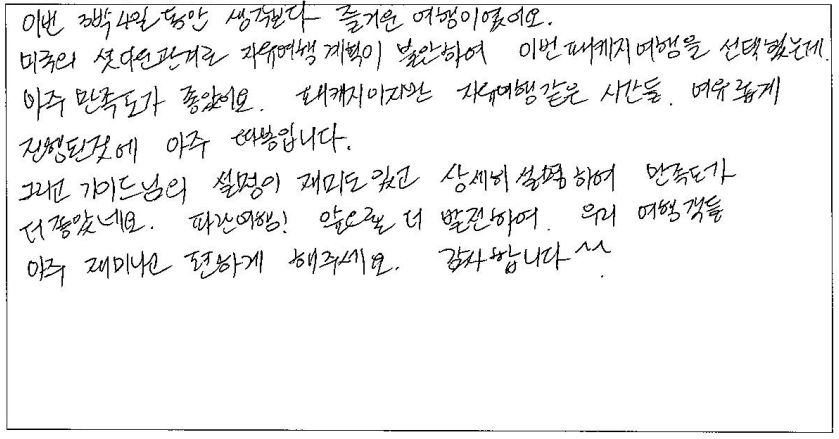 이번 3박 4일 동안 생각보다 즐거운 여행이였어요.
미국의 셧다운관계로 자유여행 계획이 불안하여 이번 패캐지여행을 선택했는데.
아주 만족도가 좋았어요. 패캐지이지만 자유여행같은 시간들. 여유롭게
진행된것에 아주 따봉입니다.
그리고 가이드님의 설명이 재미도 있고 상세히 설명하여 만족도가
더 좋았네요. 파란여행! 앞으로도 더 발전하여. 우리 여행객들
아주 재미나고 편하게 해주세요. 감사합니다^^